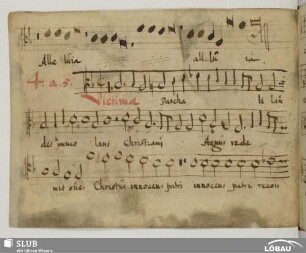 Alle luia allelu ia.
4. a. 5.
Victimæ Pascha li lau
des immo lant Christiani Agnus rede
mit oues Christus innocens patri innocens patri recon
SLUB
LÖBAU